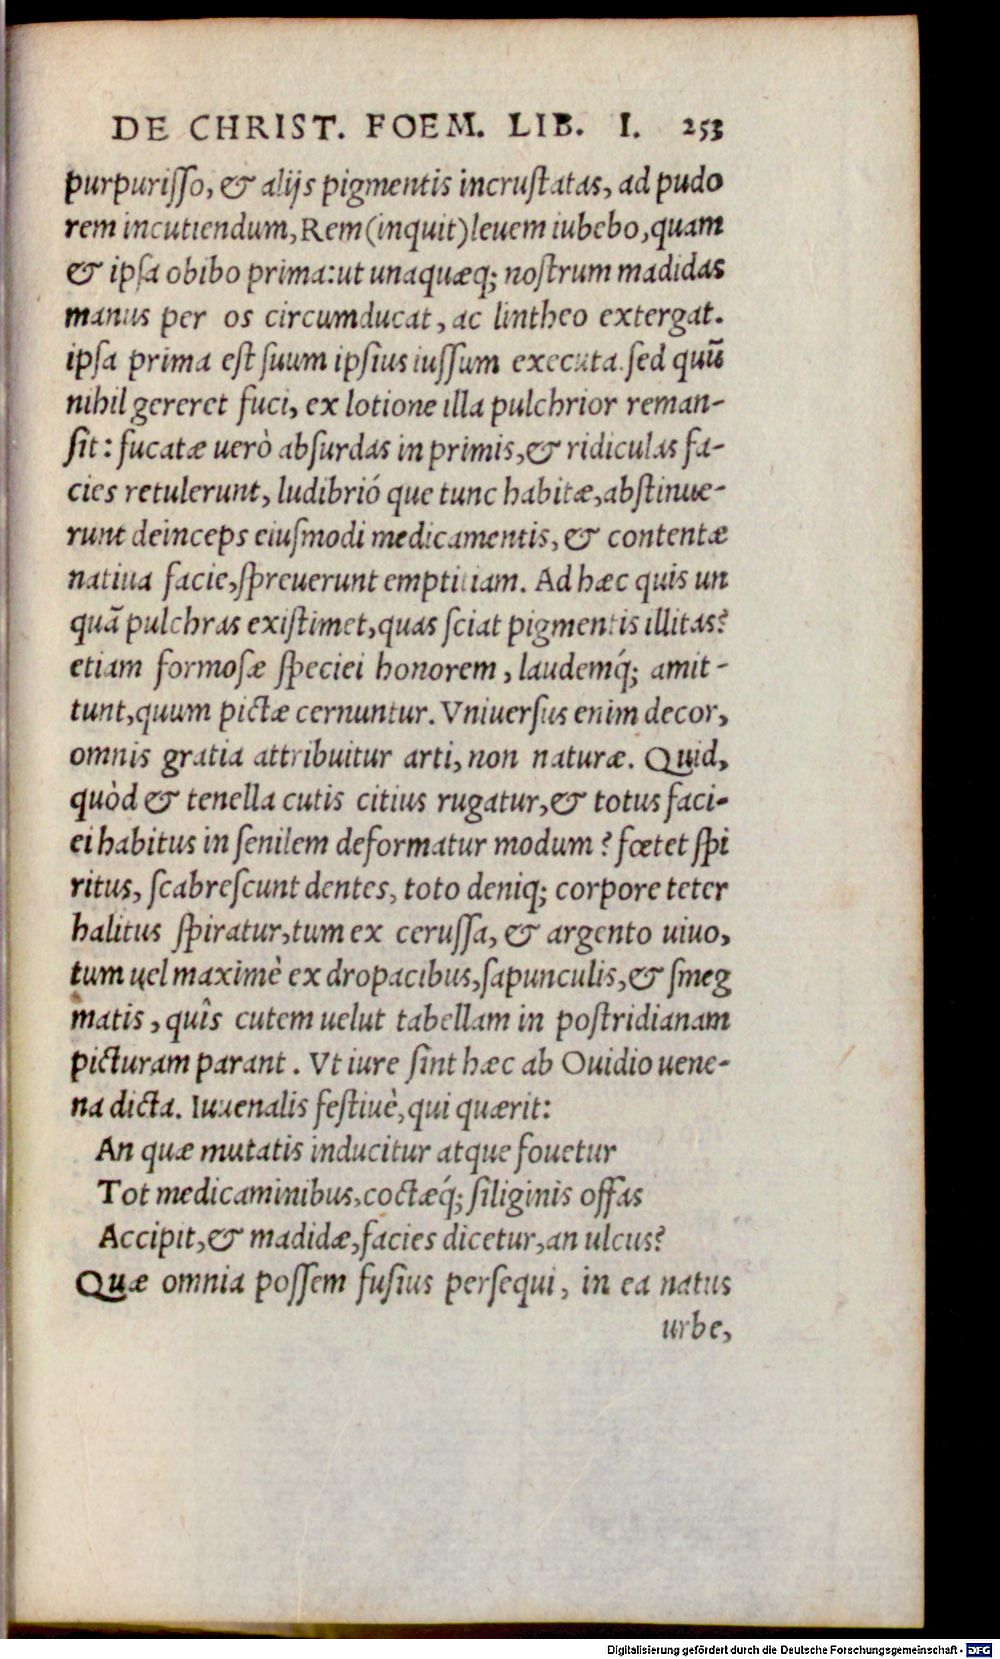 DE CHRIST. FOEM. LIB. I. 253
purpuriſſo, & alijs pigmentis incruſtatas, ad pudo
rem incutiendum, Rem (inquit) leuem iubebo, quam
& ipſa obibo prima: ut unaquæq; noſtrum madidas
manus per os circumducat, ac lintheo extergat.
ipſa prima eſt ſuum ipſius iuſſum executa. ſed quū
nihil gereret fuci, ex lotione illa pulchrior reman-
ſit: fucatæ uerò abſurdas in primis, & ridiculas fa-
cies retulerunt, ludibrió que tunc habitæ, abſtinue-
runt deinceps eiuſmodi medicamentis, & contentæ
natiua facie, ſpreuerunt emptitiam. Ad hæc quis un
quā pulchras exiſtimet, quas ſciat pigmentis illitas?
etiam formoſæ ſpeciei honorem, laudemq́; amit-
tunt, quum pictæ cernuntur. Vniuerſus enim decor,
omnis gratia attribuitur arti, non naturæ. Quid,
quòd & tenella cutis citius rugatur, & totus faci-
ei habitus in ſenilem deformatur modum? fœtet ſpi
ritus, ſcabreſcunt dentes, toto deniq; corpore teter
halitus ſpiratur, tum ex ceruſſa, & argento uiuo,
tum uel maximè ex dropacibus, ſapunculis, & ſmeg
matis, quîs cutem uelut tabellam in poſtridianam
picturam parant. Vt iure ſint hæc ab Ouidio uene-
na dicta. Iuuenalis feſtiuè, qui quærit:
An quæ mutatis inducitur atque fouetur
Tot medicaminibus, coctæq́; ſiliginis offas
Accipit, & madidæ, facies dicetur, an ulcus?
Quæ omnia poſſem fuſius perſequi, in ea natus
urbe,
Digitalisierung gefördert durch die Deutsche Forschungsgemeinschaft - DFG